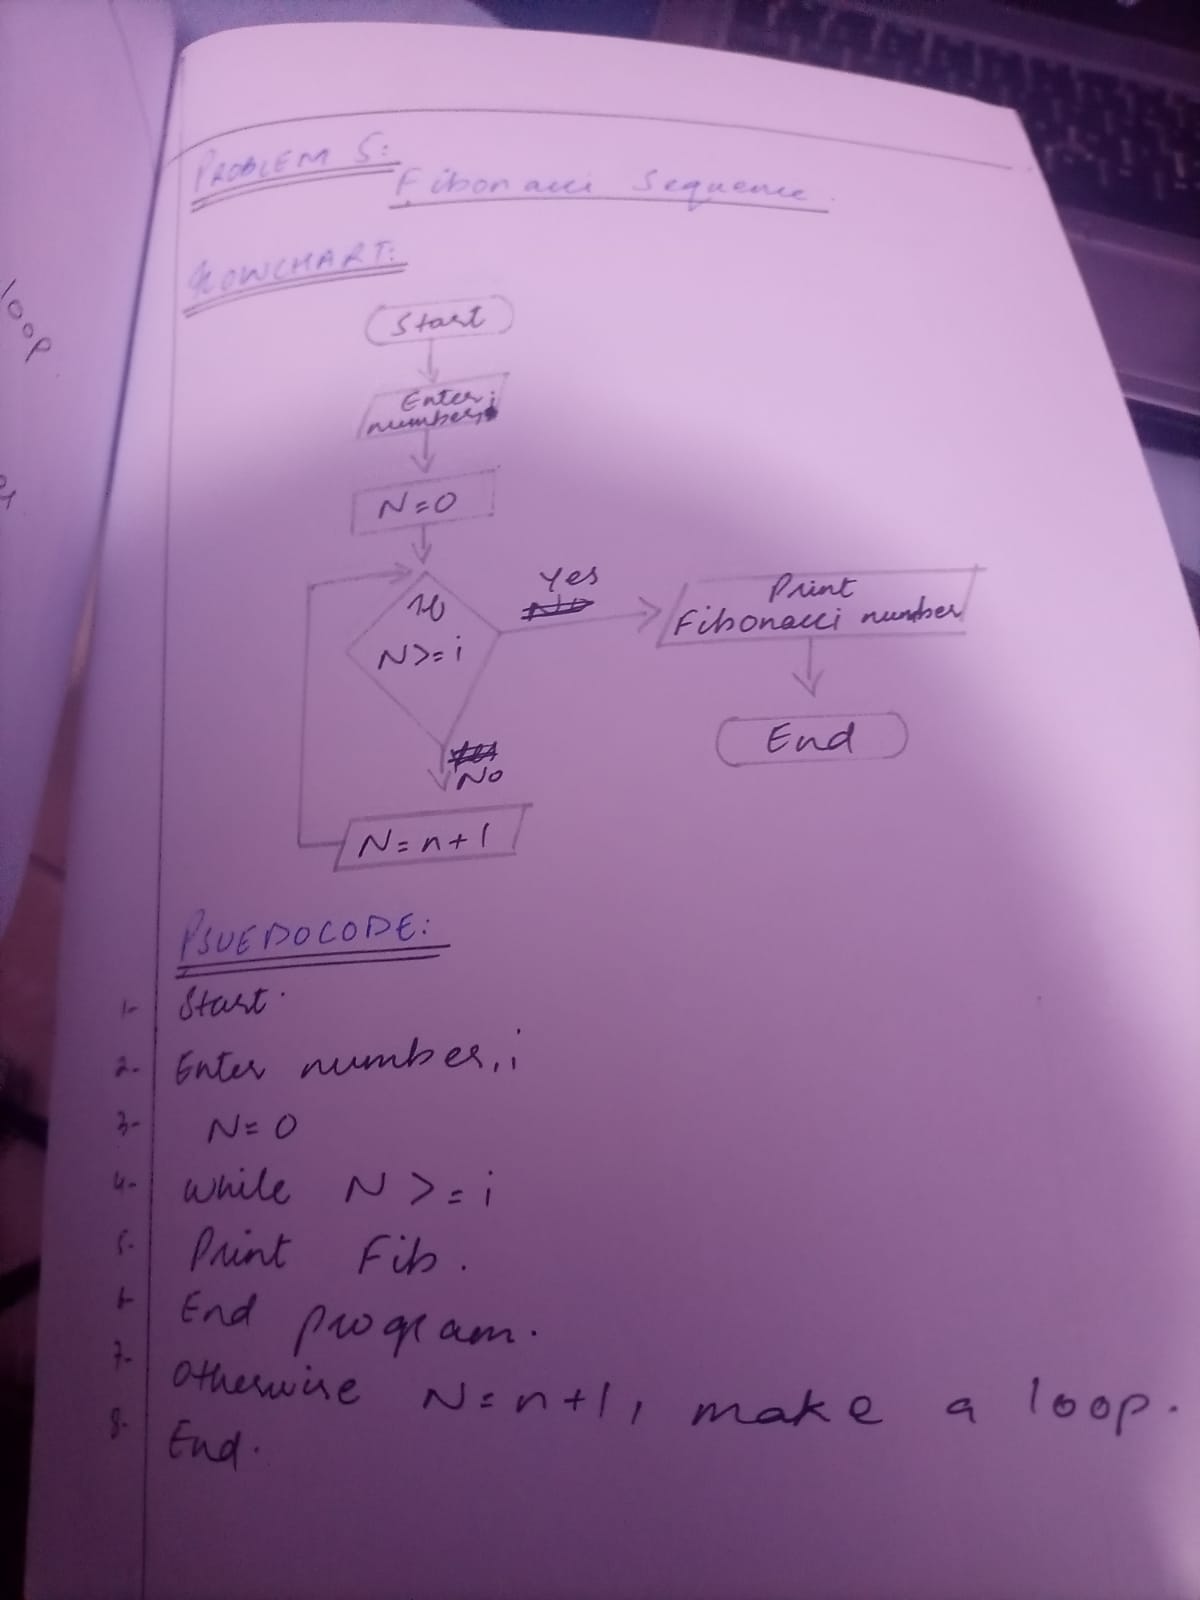 PROBLEM 5:
Fibonacci Sequence.
FLOWCHART:
Start
Enter
number, i
N=0
If
N>=i
Yes
Print
Fibonacci number
End
No
N=n+1
PSUEDOCODE:
1- Start.
2- Enter number, i
3- N=0
4- while N>=i
5- Print Fib.
6- End program.
7- Otherwise N=n+1, make a loop.
8- End.
loop